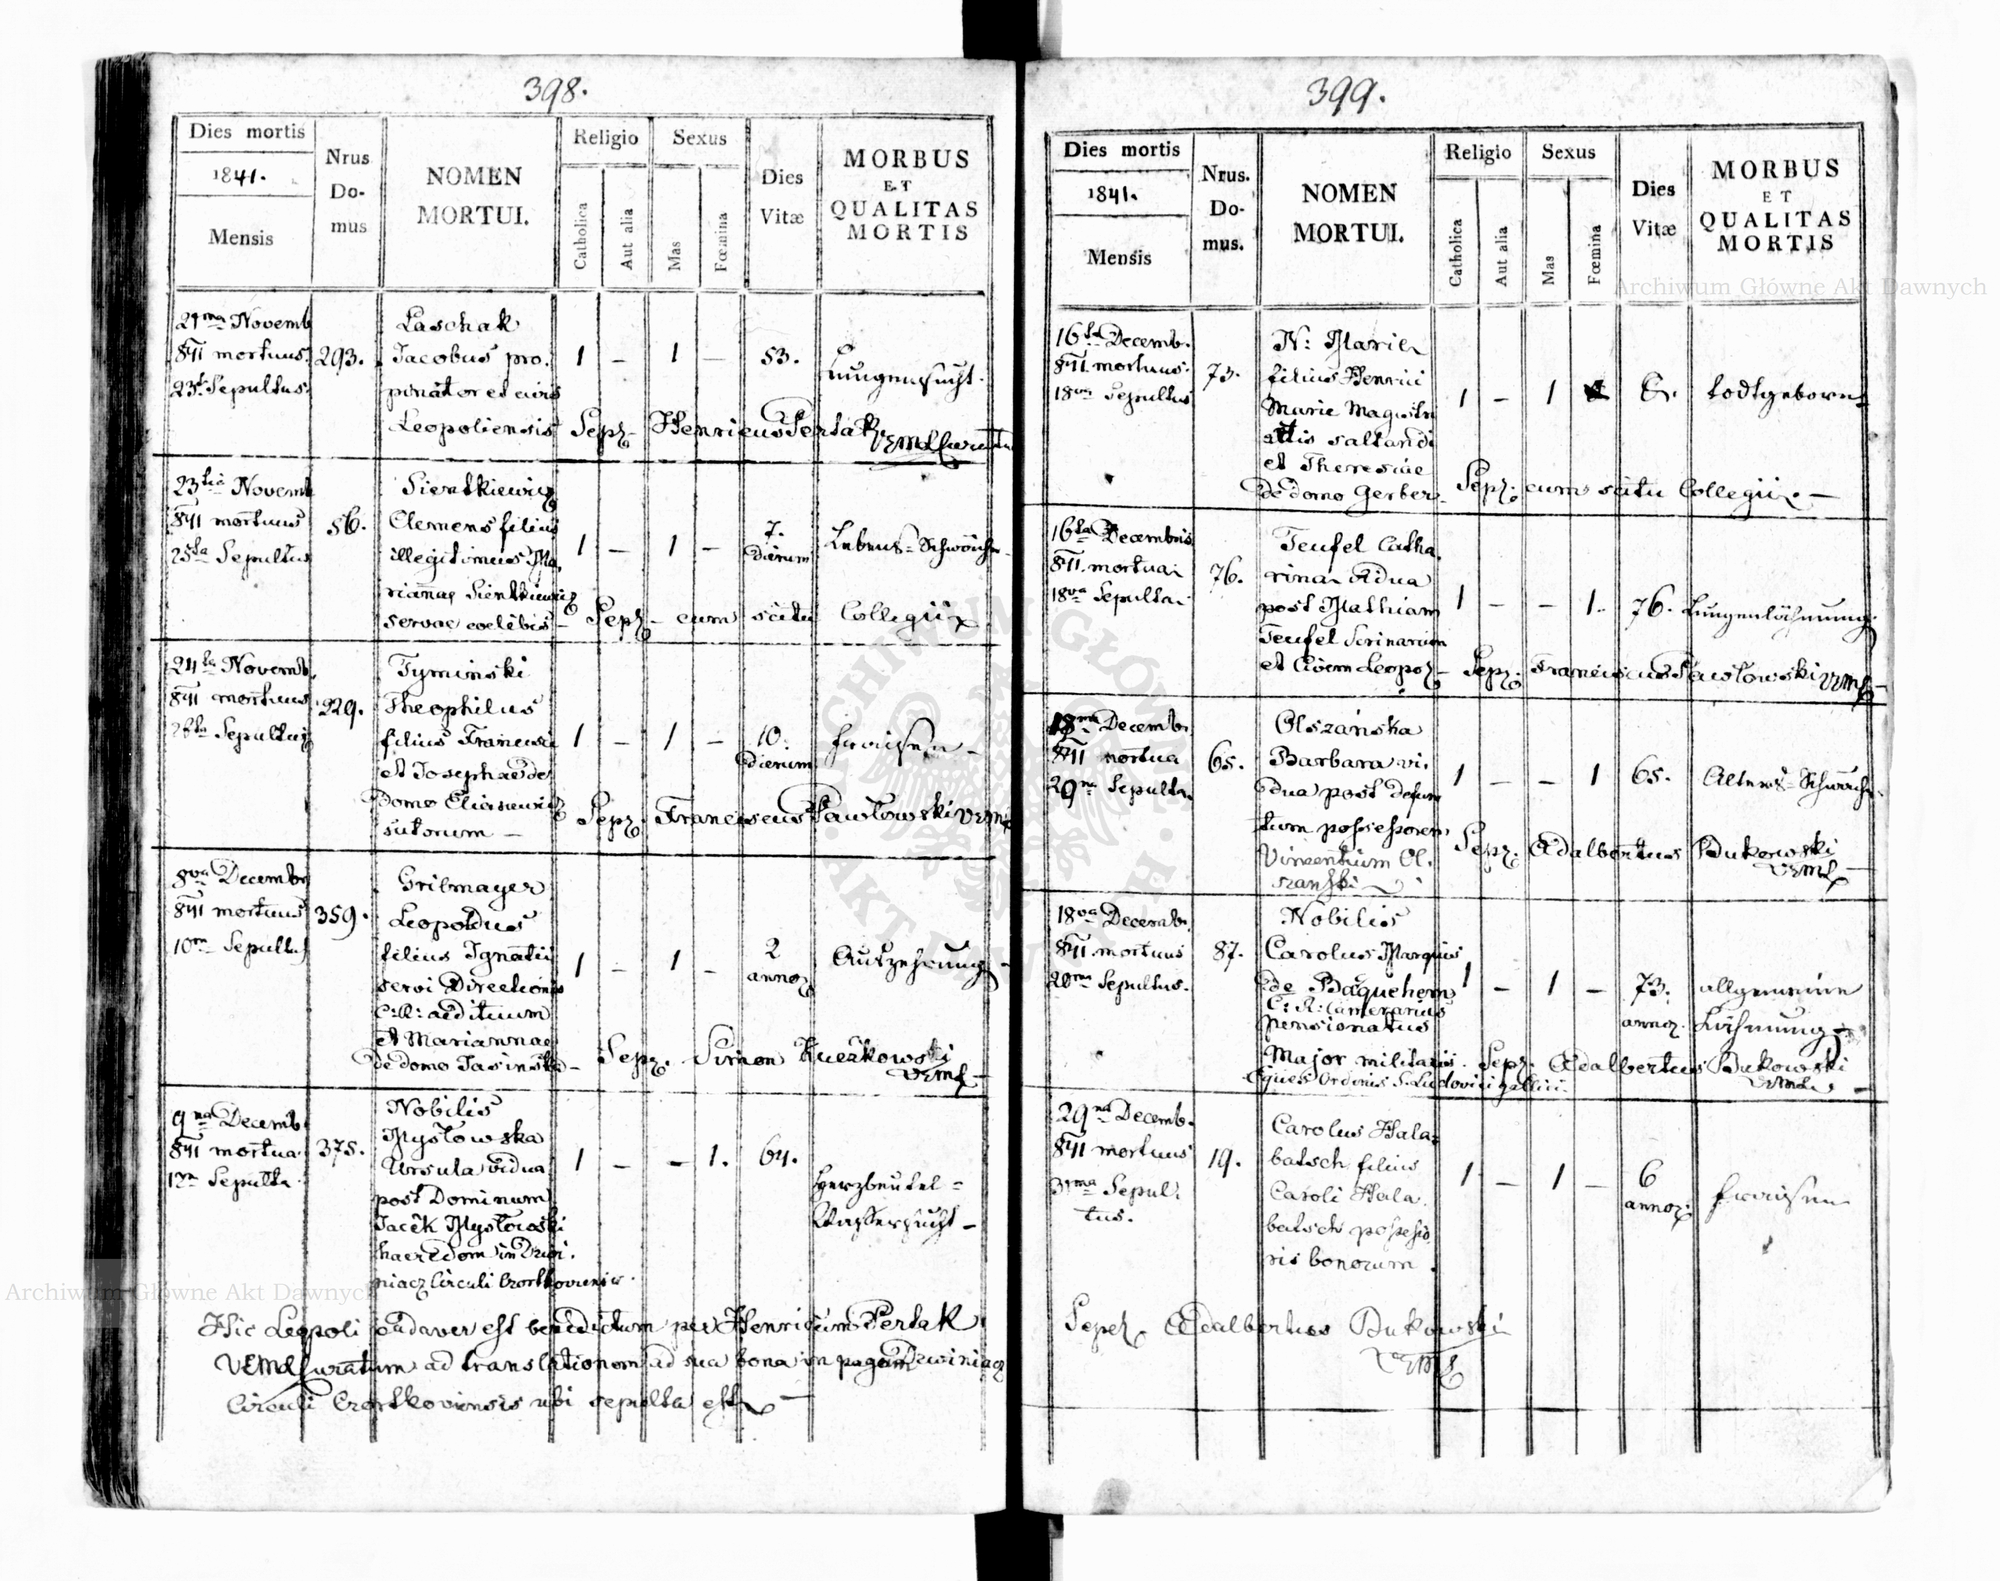 398.
Dies mortis
1841.
Mensis
Nrus
Do-
mus
NOMEN
MORTUI.
Religio
Catholica
Aut alia
Sexus
Mas
Fœmina
Dies
Vitæ
MORBUS
ET
QUALITAS
MORTIS
21ma Novemb
841 mortuus
23 Sepultus
293.
Laschak
Jacobus pro.
pinator et civis
Leopoliensis
1 — 1 — 53.
Lungensucht.
Sep. Henricus Pertak VEML Curatus
23tia Novemb
841 mortuus
25ta Sepultus
56.
Sientkiewicz
Clemens filius
illegitimus Ma.
riannae Sientkiewicz
servae coelibis
1 — 1 — 7.
dierum
Lebens=Schwäche
Sep. cum scitu Collegii
24ta Novemb.
841 mortuus
26ta Sepultus
229.
Tyminski
Theophilus
filius Francisci
et Josephae de
domo Eliasiewicz
sutorum —
1 — 1 — 10.
dierum
Fraisen —
Sep. Franciscus Pawłowski VEML
8va Decembr
841 mortuus
10ma Sepult.
359.
Grilmayer
Leopoldus
filius Ignatii
servi Directionis
C: R: aedituum
et Mariannae
de domo Jasinska
1 — 1 — 2
annor
Auszehrung
Sep. Simon Kuczkowski
VEML
9na Decemb.
841 mortua
Sepulta
375.
Nobilis
Mysłowska
Ursula vidua
post Dominum
Jacek Mysłowski
haeredem in Dzwi.
niacz Circuli Czortkoviensis.
1 — — 1. 64.
Herzbeutel=
Wassersucht —
Hic Leopoli cadaver est benedictum per Henricum Pertak
VEML Curatum ad translationem ad sua bona in pagum Dzwiniacz
Circuli Czortkoviensis ubi sepulta est —
399.
Dies mortis
1841.
Mensis
Nrus.
Do-
mus.
NOMEN
MORTUI.
Religio
Catholica
Aut alia
Sexus
Mas
Fœmina
Dies
Vitæ
MORBUS
ET
QUALITAS
MORTIS
16ta Decemb.
841 mortuus
18va Sepultus
73.
N: Marie
filius Henrici
Marie Magistri
artis saltandi
et Theresiae
de domo Gerber
1 — 1
todtgeboren
Sep. cum scitu Collegii. —
16ta Decembris
841 mortua
18va Sepulta
76.
Teufel Catha.
rina vidua
post Mathiam
Teufel Scrinarium
et Civem Leopol.
1 — — 1. 76.
Lungenlähmung
Sep. Franciscus Pawłowski VEML
Decemb.
841 mortua
Sepulta.
65.
Olszańska
Barbara vi.
dua post defun
ctum possessorem
Vincentium Ol.
szański
1 — — 1 65.
Alters=Schwäche
Sep. Adalbertus Bukowski
VEML
18va Decemb.
841 mortuus
20ma Sepultus.
87.
Nobilis
Carolus Marquis
de Baquehem
C: R: Camerarius
pensionatus
Major militaris.
Eques Ordinis S. Ludovici gallici
1 — 1 — 73.
annor.
allgemeine
Lähmung
Sep. Adalbertus Bukowski
VEML
29na Decemb.
841 mortuus
31ma Sepul.
tus.
19.
Carolus Hala=
batsch filius
Caroli Hala.
batsch possesso
ris bonorum.
1 — 1 — 6
annor.
Fraisen
Sepel. Adalbertus Bukowski
VEML
Archiwum Główne Akt Dawnych
Archiwum Główne Akt Dawnych
ARCHIWUM GŁÓWNE AKT DAWNYCH